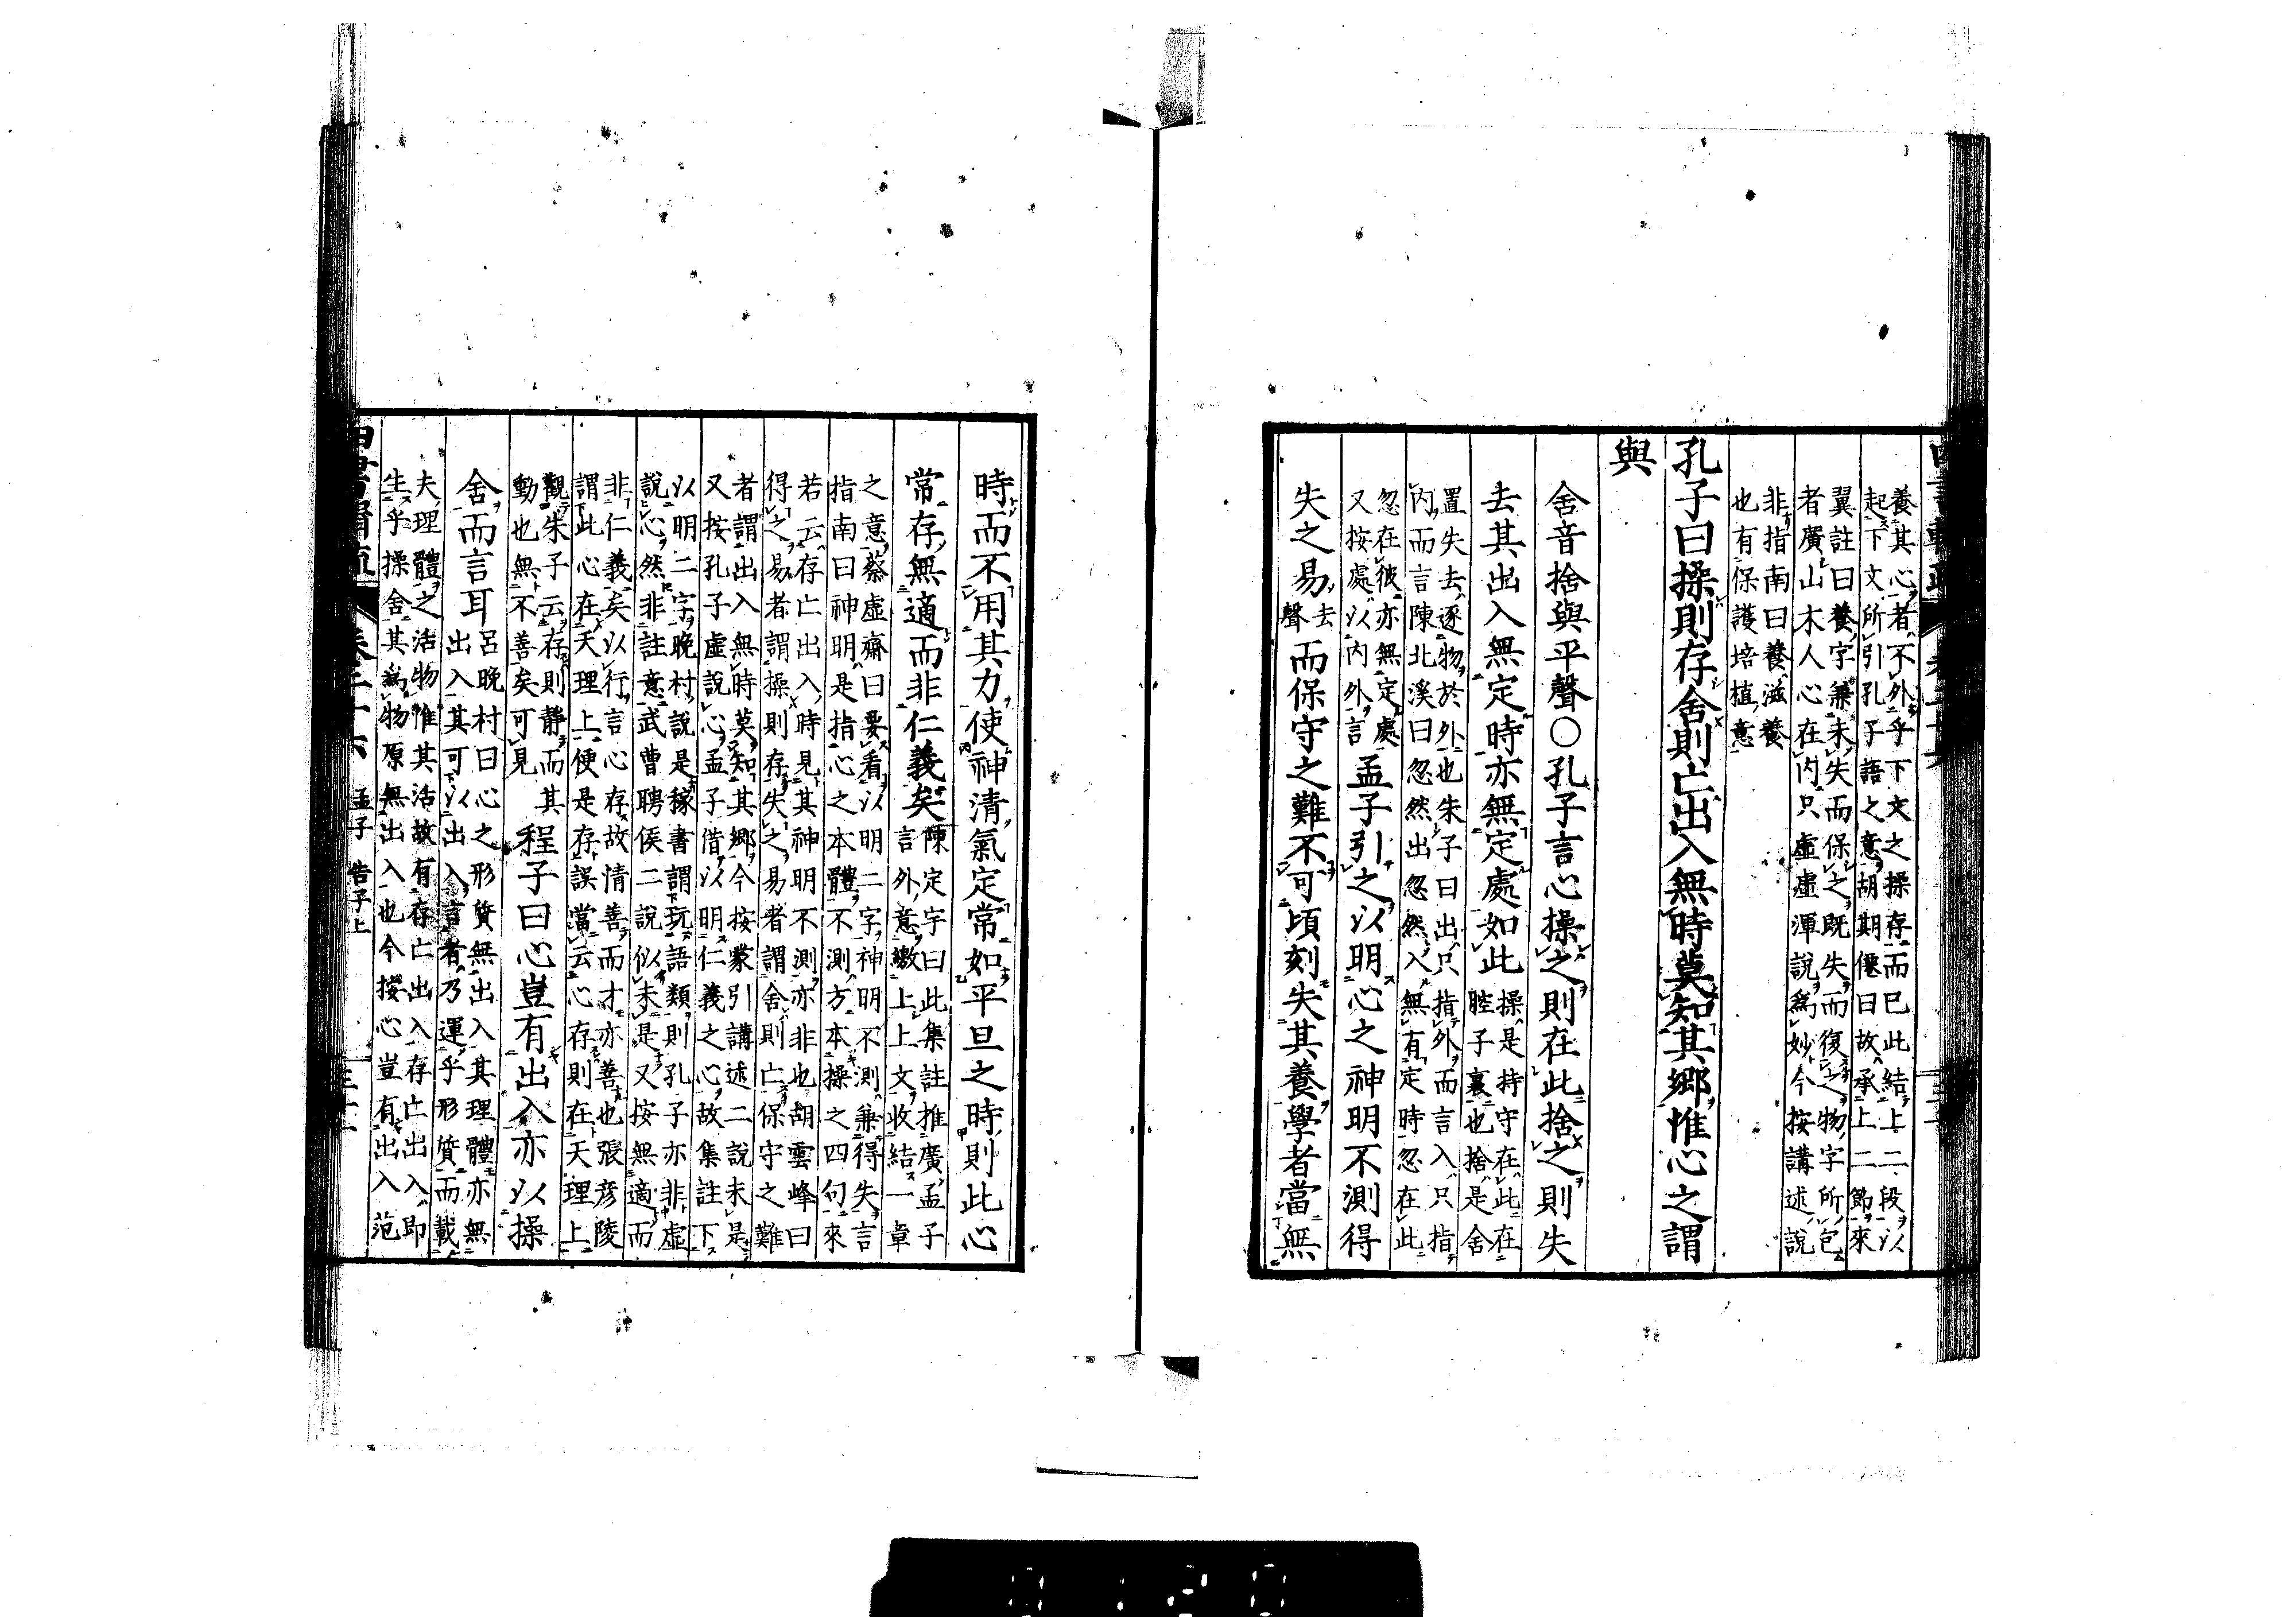 養其心者不外乎下文之操存而已此結上二段以
起下文所引孔子語之意胡期僊曰故承上二節來
翼註曰養字兼未失而保之既失而復之物字所包
者廣山木人心在内只虛虛渾說爲妙今按講述說
非指南曰養滋養
也有保護培植意
孔子曰操則存舍則亡出入無時莫知其郷惟心之謂
與
舍音捨與平聲〇孔子言心操之則在此捨之則失
去其出入無定時亦無定處如此
操是持守在此在
腔子裏也捨是舍
置失去逐物於外也朱子曰出只指外而言入只指
内而言陳北溪曰忽然出忽然入無有定時忽在此
忽在彼亦無定處
又按處以内外言
孟子引之以明心之神明不測得
失之易
去
聲
而保守之難不可頃刻失其養學者當無
時而不用其力使神清氣定常如平旦之時則此心
常存無適而非仁義矣
陳定宇曰此集註推廣孟子
言外意繳上上文收結一章
之意蔡虛齋曰要看以明二字神明不測兼得失言
指南曰神明是指心之本體不測方本操之四句來
若云存亡出入時見其神明不測亦非也胡雲峰曰
得之易者謂操則存失之易者謂舍則亡保守之難
者謂出入無時莫知其郷今按蒙引講述二說未是
又按孔子虛說心孟子借以明仁義之心故集註下
以明二字晚村說是稼書謂玩語類則孔子亦非虛
說心然非註意武曹聘侯二說似未是又按無適而
非仁義矣以行言心存故情善而才亦善也張彦陵
謂此心在天理上便是存誤當云心存則在天理上
觀朱子云存則靜而其
動也無不善矣可見
程子曰心豈有出入亦以操
舍而言耳
呂晚村曰心之形質無出入其理體亦無
出入其可以出入言者乃運乎形質而載
夫理體之活物惟其活故有存亡出入存亡出入即
生乎操舍其爲物原無出入也今按心豈有出入范
孟子 告子上